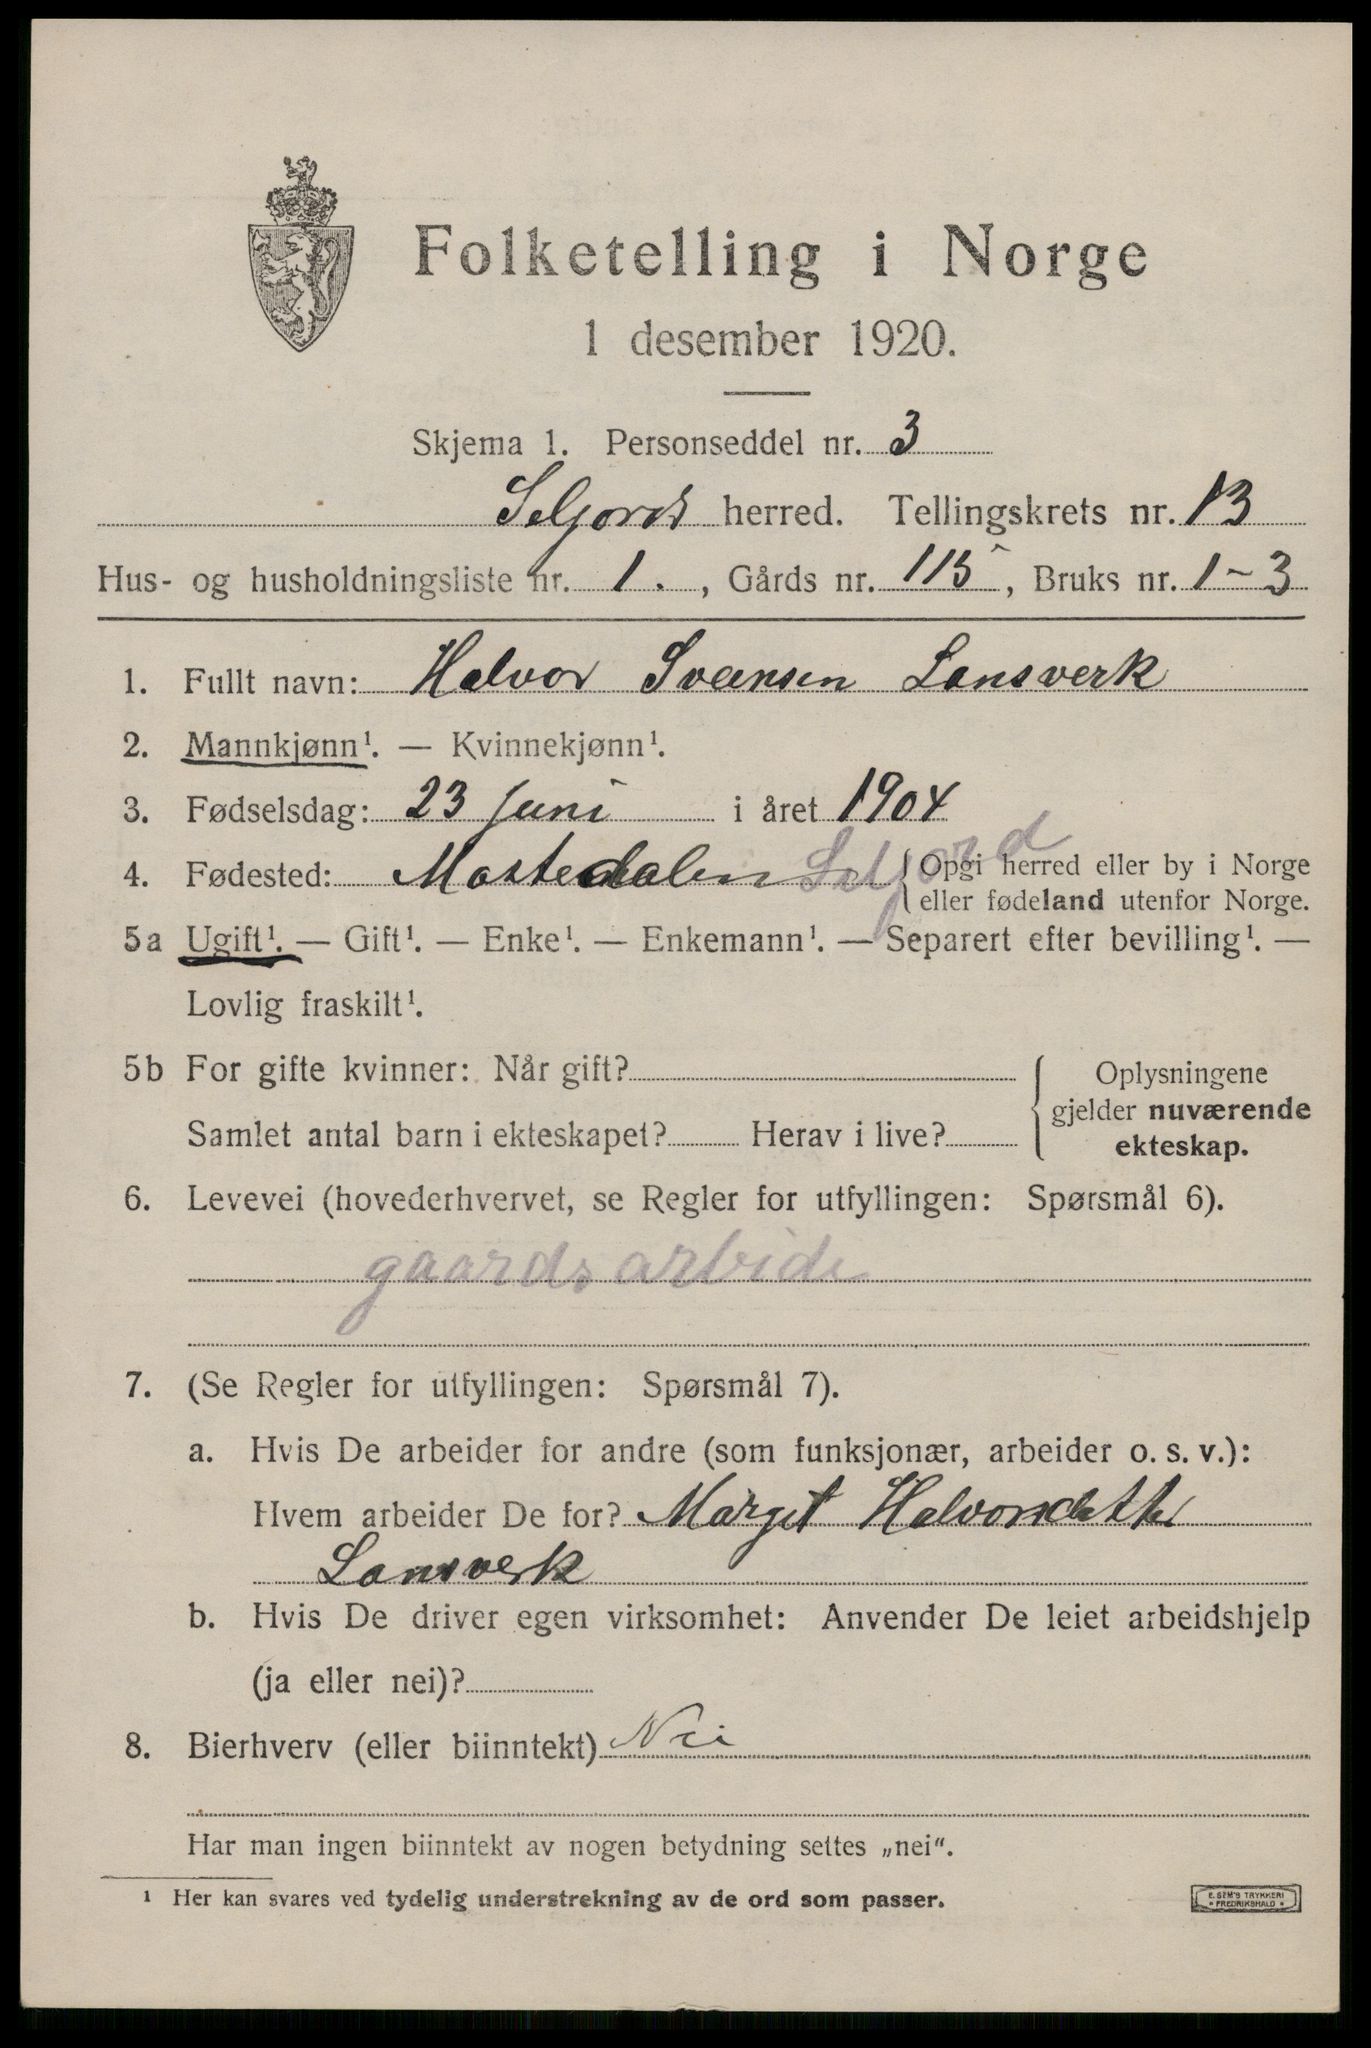 Folketelling i Norge
1 desember 1920.
Skjema 1. Personseddel nr. 3
Seljord herred. Tellingskrets nr. 13
Hus- og husholdningsliste nr. 1. , Gårds nr. 115, Bruks nr. 1-3
1. Fullt navn: Halvor Sveinsen Lansverk
2. Mannkjønn¹. — Kvinnekjønn¹.
3. Fødselsdag: 23 Juni i året 1904
4. Fødested: Mostedalen Seljord { Opgi herred eller by i Norge
eller fødeland utenfor Norge.
5a Ugift¹. — Gift¹. — Enke¹. — Enkemann¹. — Separert efter bevilling¹. —
Lovlig fraskilt¹.
5b For gifte kvinner: Når gift?
Samlet antal barn i ekteskapet? Herav i live?
{ Oplysningene
gjelder nuværende
ekteskap.
6. Levevei (hovederhvervet, se Regler for utfyllingen: Spørsmål 6).
gaardsarbide
7. (Se Regler for utfyllingen: Spørsmål 7).
a. Hvis De arbeider for andre (som funksjonær, arbeider o. s. v.):
Hvem arbeider De for? Margit
Lansverk
b. Hvis De driver egen virksomhet: Anvender De leiet arbeidshjelp
(ja eller nei)?
8. Bierhverv (eller biinntekt) Nei
Har man ingen biinntekt av nogen betydning settes „nei“.
¹ Her kan svares ved tydelig understrekning av de ord som passer.
E. SEM'S TRYKKERI
* FREDRIKSHALD *